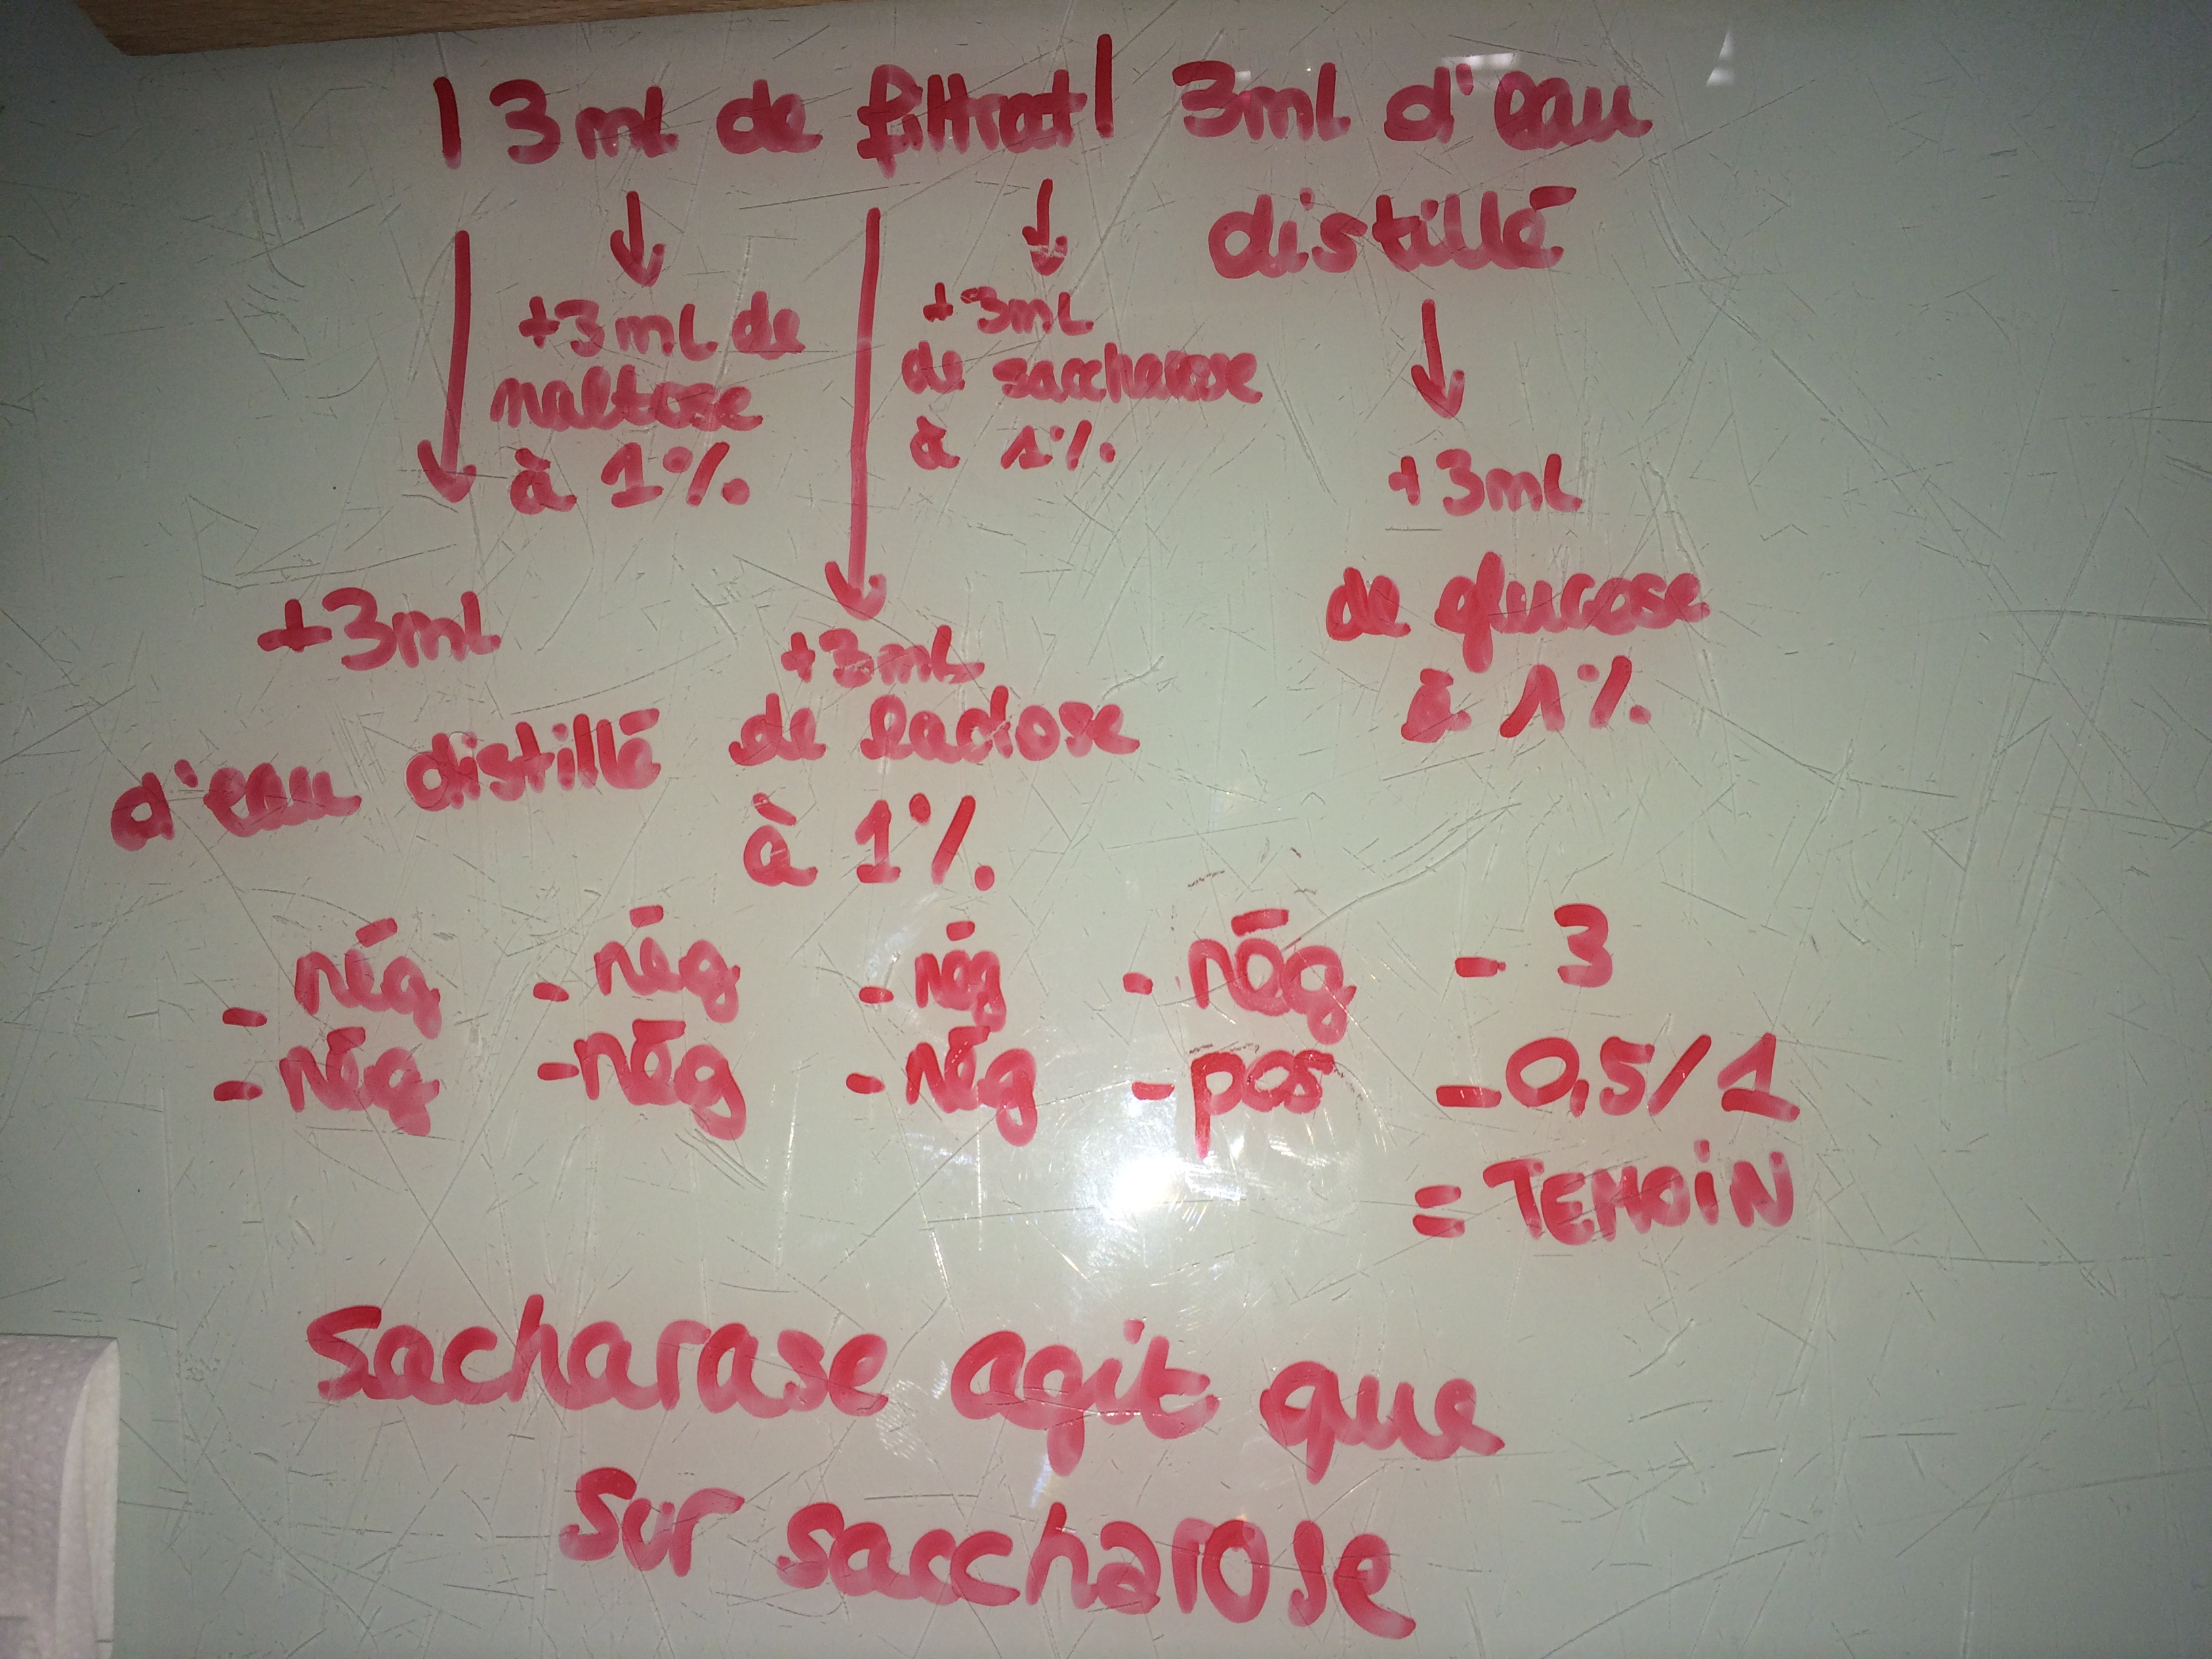 | 3 mL de filtrat | 3 mL d'eau
distillé
+3 mL de
maltose
à 1%
+3 mL
de saccharose
à 1%
+3 mL
de glucose
à 1%
+3 mL
d'eau distillé
+3 mL
de lactose
à 1%
- nég - nég - nég - nég - 3
- nég - nég - nég - pos - 0,5/1
= TEMOIN
Sacharase agit que
sur saccharose